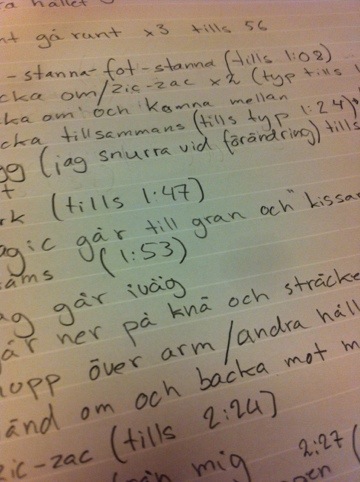 ra hållet
nt går runt x3 tills 56
- stanna-fot-stanna (tills 1:08)
cka om/zic-zac x2 (typ tills 1
ka om och komma mellan
cka tillsammans (tills typ 1:24)
gg (jag snurra vid förändring) tills
t
rk (tills 1:47)
agic går till gran och "kissar
ams (1:53)
ag går iväg
går ner på knä och sträcke
hopp över arm/andra håll
änd om och backa mot m
zic-zac (tills 2:24)
från mig 2:27 (